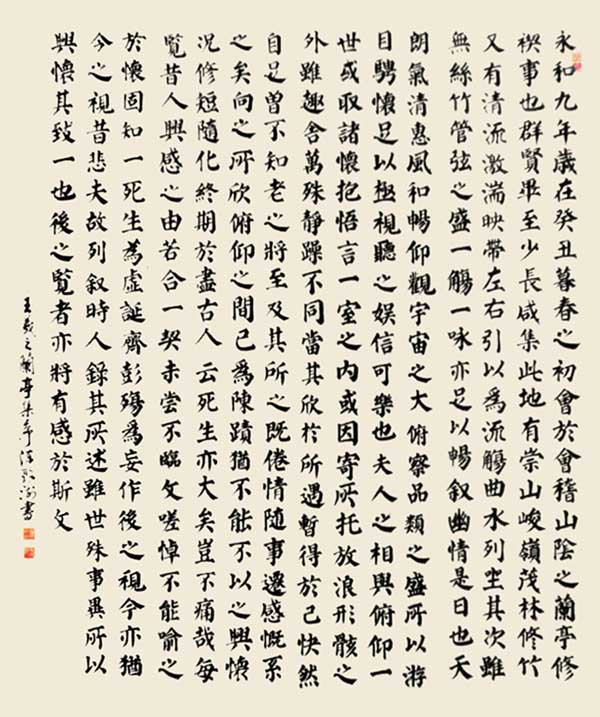 永和九年歲在癸丑暮春之初會於會稽山陰之蘭亭修
禊事也群賢畢至少長咸集此地有崇山峻嶺茂林修竹
又有清流激湍映帶左右引以為流觴曲水列坐其次雖
無絲竹管弦之盛一觴一咏亦足以暢叙幽情是日也天
朗氣清惠風和暢仰觀宇宙之大俯察品類之盛所以游
目騁懷足以極視聽之娛信可樂也夫人之相與俯仰一
世或取諸懷抱悟言一室之內或因寄所托放浪形骸之
外雖趣舍萬殊靜躁不同當其欣於所遇暫得於己快然
自足曾不知老之將至及其所之既倦情隨事遷感慨系
之矣向之所欣俯仰之間已為陳蹟猶不能不以之興懷
況修短隨化終期於盡古人云死生亦大矣豈不痛哉每
覽昔人興感之由若合一契未嘗不臨文嗟悼不能喻之
於懷固知一死生為虛誕齊彭殤為妄作後之視今亦猶
今之視昔悲夫故列叙時人錄其所述雖世殊事異所以
興懷其致一也後之覽者亦將有感於斯文
王羲之蘭亭集序書